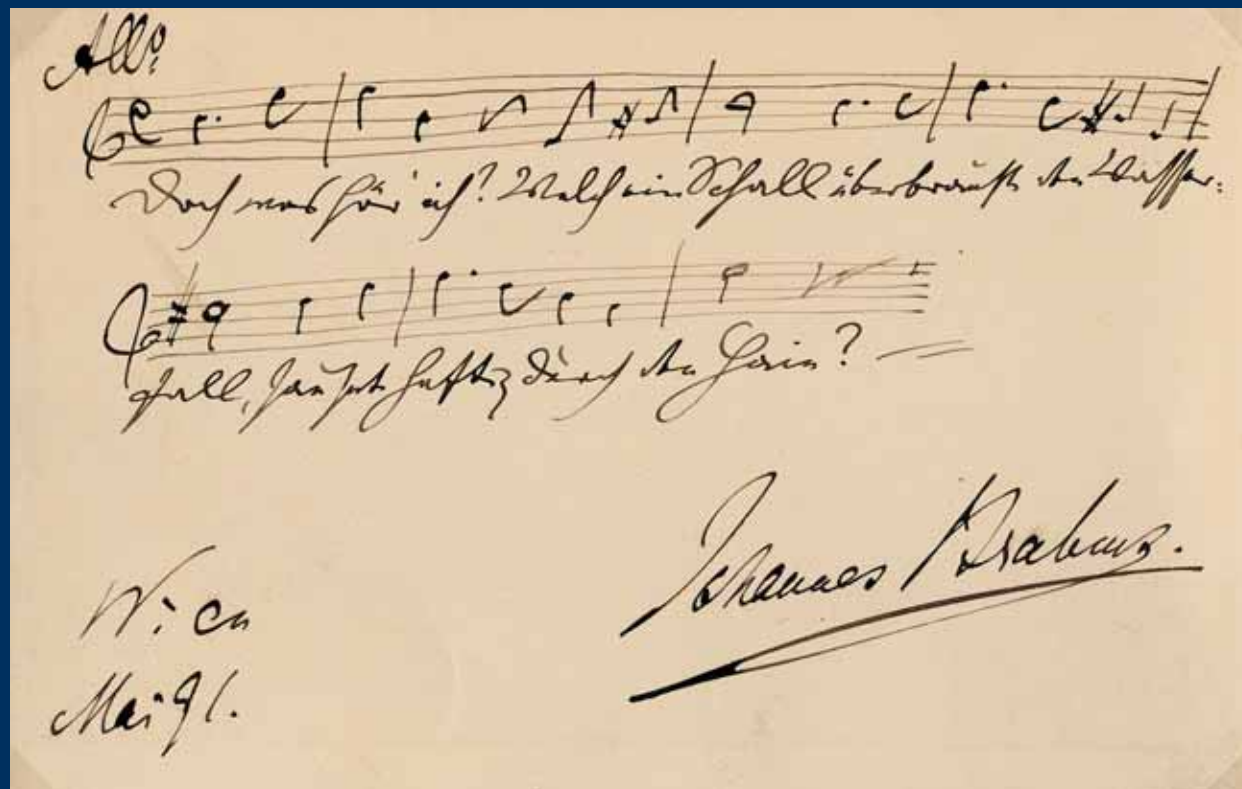 Allo.
Doch was hör' ich? Welch ein Schall überbraust den Wasser:
fall, sauset heftig durch den Hain?
Johannes Brahms.
Wien
Mai 91.